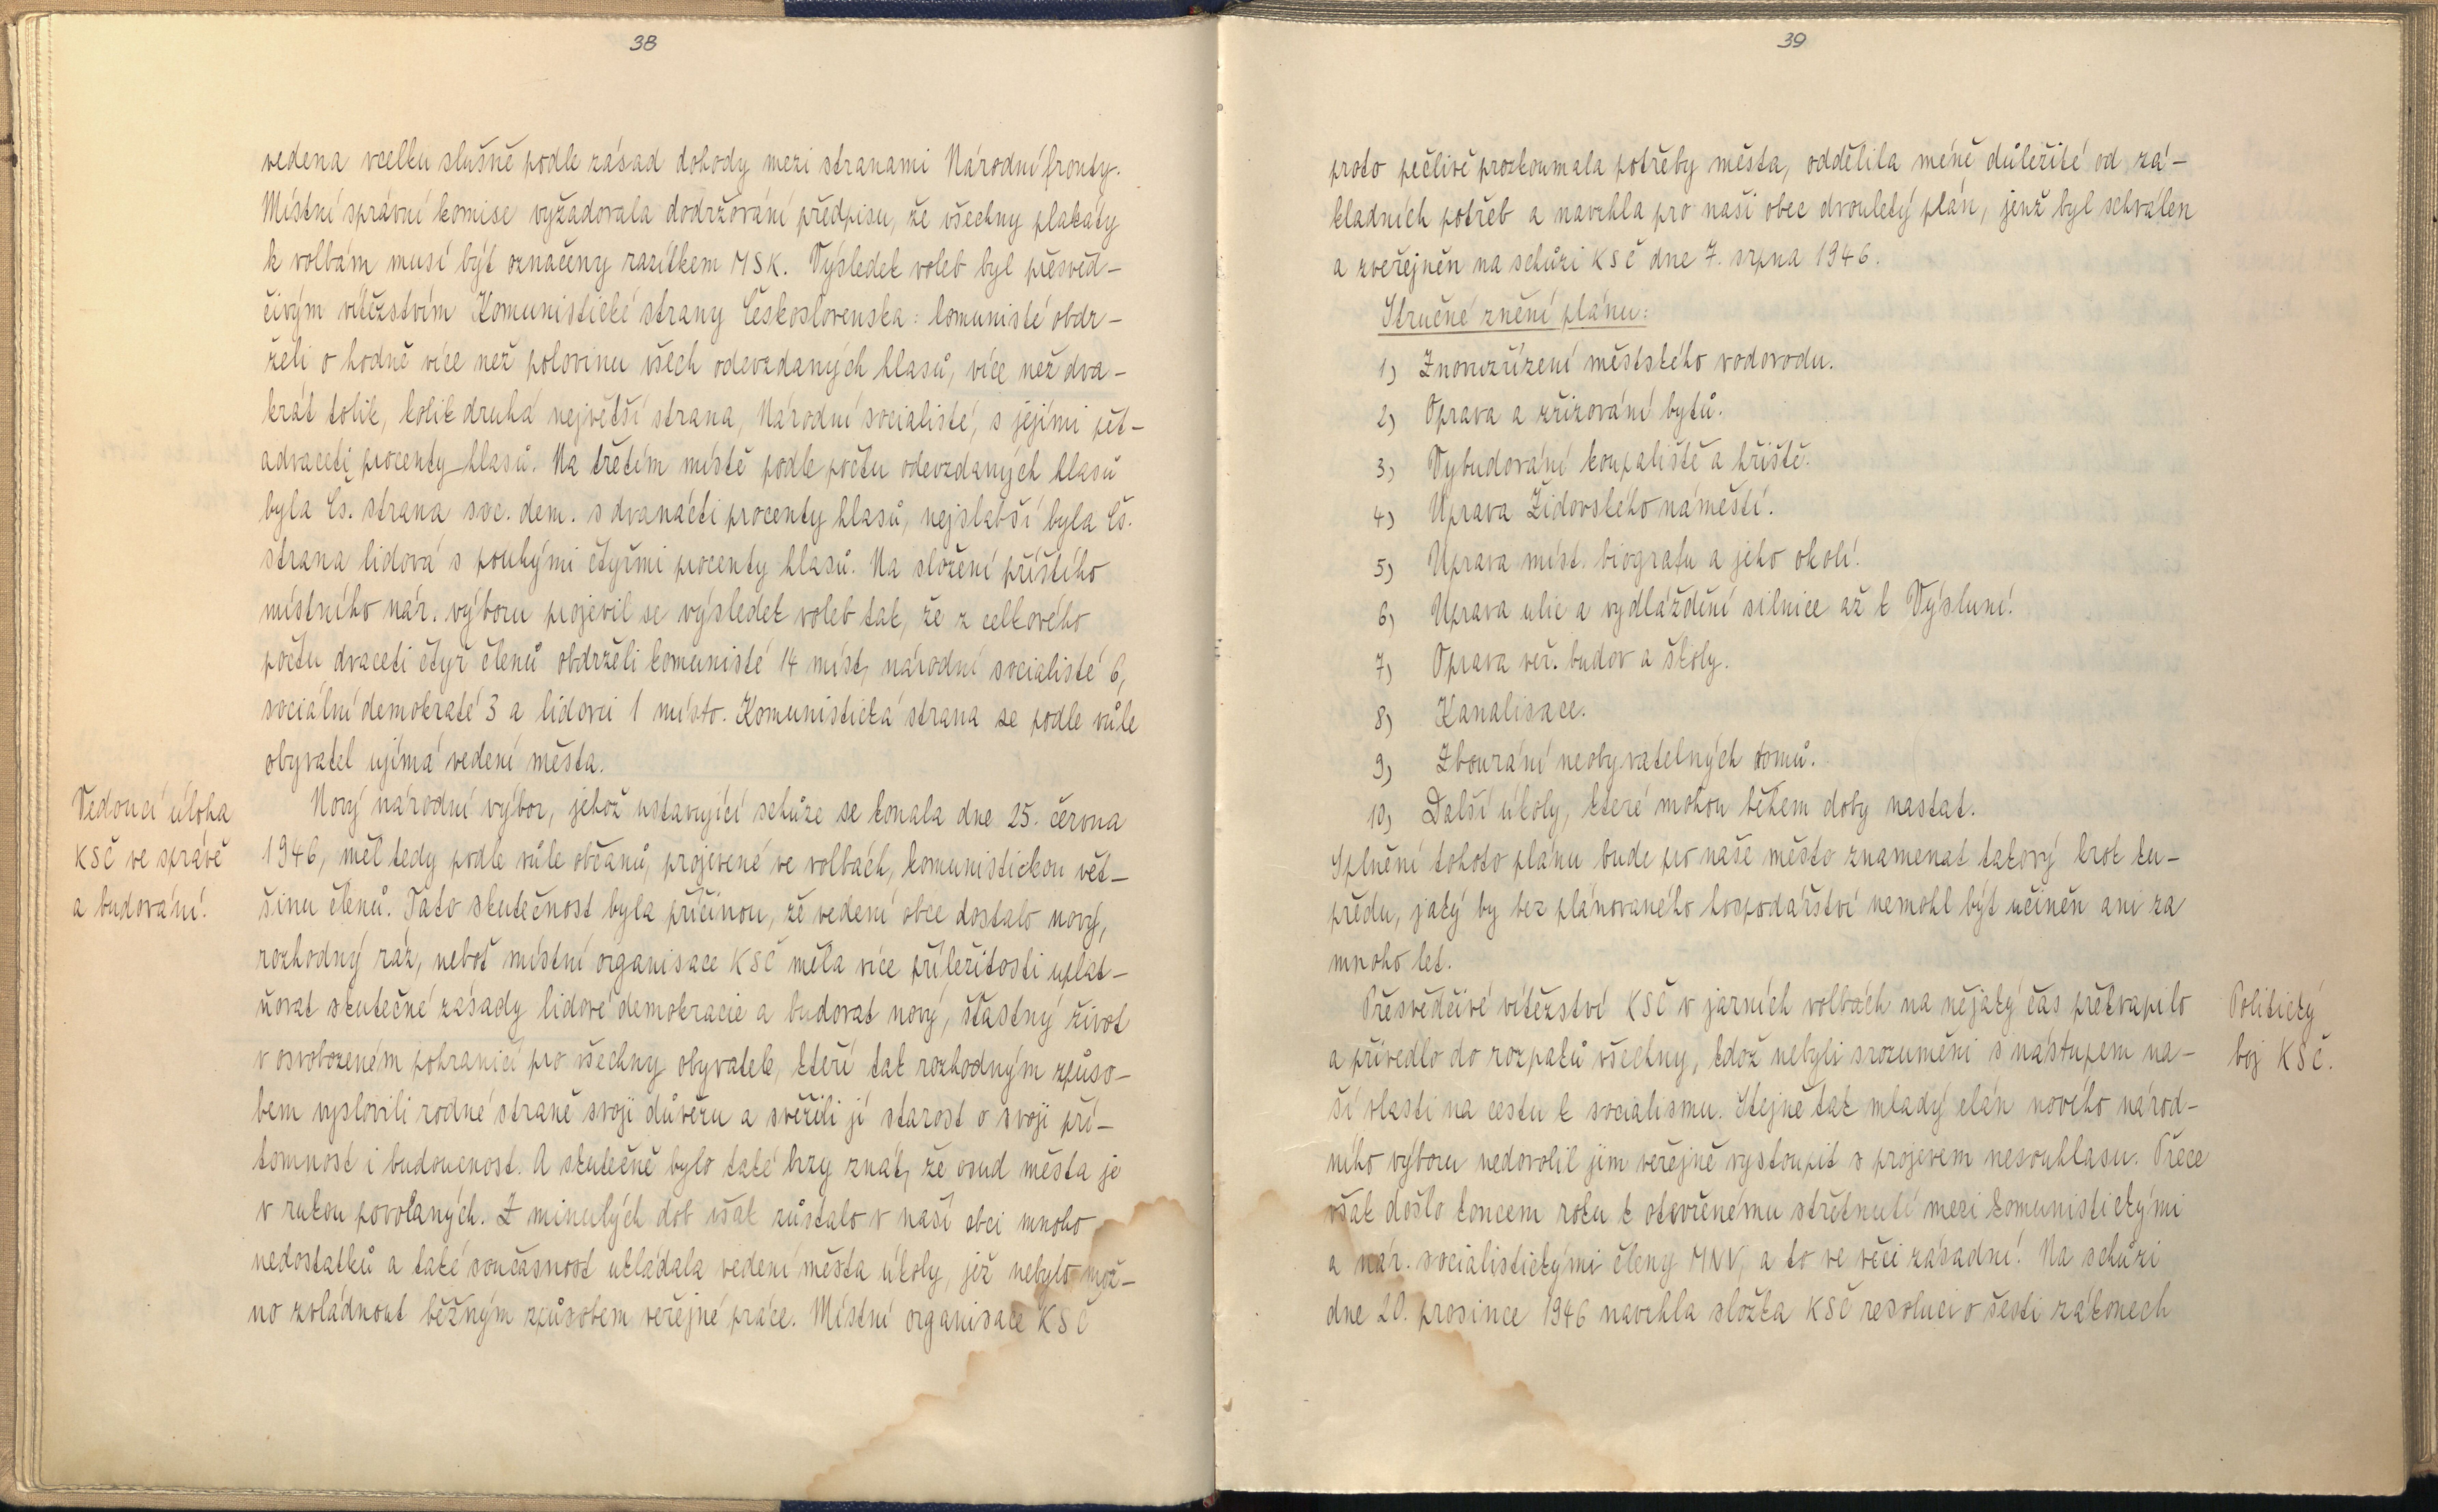 38
vedena vcelku slušně podle zásad dohody mezi stranami Národní fronty.
Místní správní komise vyžadovala dodržování předpisu, že všechny plakáty
k volbám musí být označeny razítkem MSK. Výsledek voleb byl přesvěd-
čivým vítězstvím Komunistické strany Československa: komunisté obdr-
želi o hodně více než polovinu všech odevzdaných hlasů, více než dva-
krát tolik, kolik druhá největší strana, Národní socialisté, s jejími pět-
advaceti procenty hlasů. Na třetím místě podle počtu odevzdaných hlasů
byla Čs. strana soc. dem. s dvanácti procenty hlasů, nejslabší byla Čs.
strana lidová s pouhými čtyřmi procenty hlasů. Na složení příštího
místního nár. výboru projevil se výsledek voleb tak, že z celkového
počtu dvaceti čtyř členů obdrželi komunisté 14 míst, národní socialisté 6,
sociální demokraté 3 a lidovci 1 místo. Komunistická strana se podle vůle
obyvatel ujímá vedení města.
Vedoucí úloha
KSČ ve správě
a budování.
Nový národní výbor, jehož ustavující schůze se konala dne 25. června
1946, měl tedy podle vůle občanů, projevené ve volbách, komunistickou vět-
šinu členů. Tato skutečnost byla příčinou, že vedení obce dostalo nový,
rozhodný ráz, neboť místní organisace KSČ měla více příležitosti uplat-
ňovat skutečné zásady lidové demokracie a budovat nový, šťastný život
v osvobozeném pohraničí pro všechny obyvatele, kteří tak rozhodným způso-
bem vyslovili rodné straně svoji důvěru a svěřili jí starost o svoji pří-
tomnost i budoucnost. A skutečně bylo také brzy znát, že osud města je
v rukou povolaných. Z minulých dob však zůstalo v naší obci mnoho
nedostatků a také současnost ukládala vedení města úkoly, jež nebylo mož-
no zvládnout běžným způsobem veřejné práce. Místní organisace KSČ
39
proto pečlivě prozkoumala potřeby města, oddělila méně důležité od zá-
kladních potřeb a navrhla pro naši obec dvouletý plán, jenž byl schválen
a zveřejněn na schůzi KSČ dne 7. srpna 1946.
Stručné znění plánu:
1) Znovuzřízení městského vodovodu.
2) Oprava a zřizování bytů.
3) Vybudování koupaliště a hřiště.
4) Úprava Židovského náměstí.
5) Úprava míst. biografu a jeho okolí.
6) Úprava ulic a vydláždění silnice až k Výsluní.
7) Oprava veř. budov a školy.
8) Kanalisace.
9) Zbourání neobyvatelných domů.
10) Další úkoly, které mohou během doby nastat.
Splnění tohoto plánu bude pro naše město znamenat takový krok ku-
předu, jaký by bez plánovaného hospodářství nemohl být učiněn ani za
mnoho let.
Přesvědčivé vítězství KSČ v jarních volbách na nějaký čas překvapilo
a přivedlo do rozpaků všechny, kdož nebyli srozuměni s nástupem na-
ší vlasti na cestu k socialismu. Stejně tak mladý elán nového národ-
ního výboru nedovolil jim veřejně vystoupit s projevem nesouhlasu. Přece
však došlo koncem roku k otevřenému střetnutí mezi komunistickými
a nár. socialistickými členy MNV, a to ve věci zásadní. Na schůzi
dne 20. prosince 1946 navrhla složka KSČ resoluci o šesti zákonech
Politický
boj KSČ.